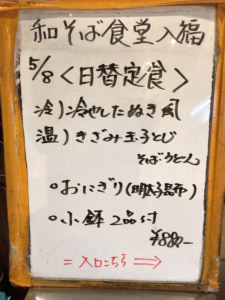 和そば食堂 入福
5/8 <日替定食>
冷)冷やしたぬき風
温)きざみ玉子とじ
そばうどん
○おにぎり(明太子昆布)
○小鉢 2品付
¥880-
=入口こちら⇒